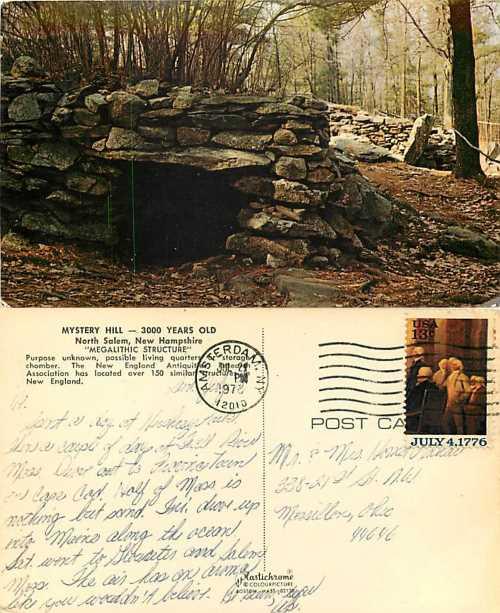 MYSTERY HILL — 3000 YEARS OLD
North Salem, New Hampshire
"MEGALITHIC STRUCTURE"
Purpose unknown, possible living quarters or storage
chamber. The New England Antiquities Research
Association has located over 150 similar structures in
New England.
AMSTERDAM, NY
PM
1978
12010
USA
13c
JULY 4, 1776
POST CARD
a day at
a couple of days at Fall River
Mass. Drove out to
on Cape Cod. Half of Mass is
nothing but sand. Fri. drove up
into Maine along the ocean.
Sat went to Gloucester and Salem
Mass. The air has an aroma
like you wouldn't believe. Be
Mr. & Mrs
328-21 St. N.W.
Massillon, Ohio
44646
Plastichrome
® COLOURPICTURE
BOSTON, MASS. 02130